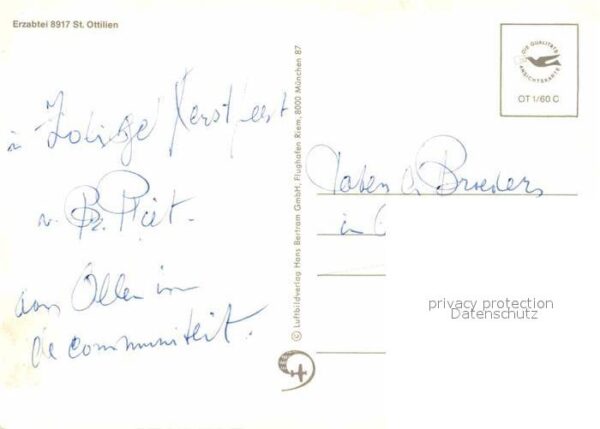 Erzabtei 8917 St. Ottilien
n Zalige Kerstfeest
v. Br. Piet.
aan Allen in
de communiteit.
© Luftbildverlag Hans Bertram GmbH, Flughafen Riem, 8000 München 87
DIE QUALITÄTS
ANSICHTSKARTE
OT 1/60 C
Paters & Broeders
in
privacy protection
Datenschutz